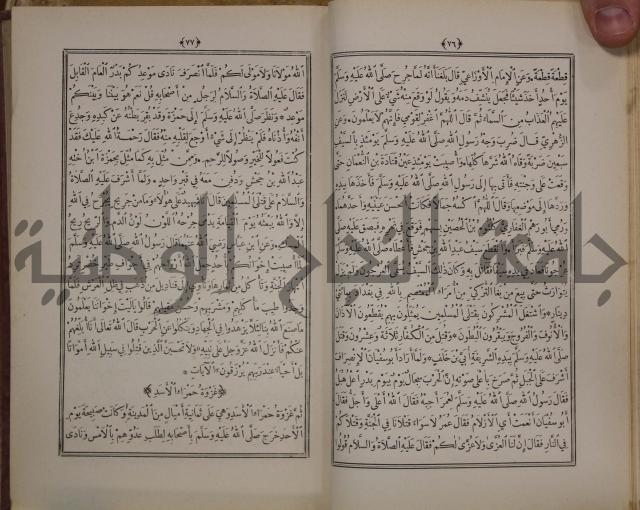 ﴿٧٦﴾
قطعة قطعة وعن الإمام الأوزاعي قال بلغنا أنه لما جرح صلى الله عليه وسلم
يوم أحد أخذ شيئا فجعل ينشف دمه ويقول لو وقع منه شيء على الأرض لنزل
عليهم العذاب من السماء ثم قال اللهم اغفر لقومي فإنهم لا يعلمون وعن
الزهري قال ضرب وجه رسول الله صلى الله عليه وسلم يومئذ بالسيف
سبعين ضربة وقاه الله شرها كلها وأصيبت يومئذ عين قتادة بن النعمان حتى
وقعت على وجنته فأتى بها إلى رسول الله صلى الله عليه وسلم فأخذها بيده
وردها إلى موضعها وقال اللهم اكسه جمالا فكانت أحسن عينيه وأحدهما
ورمي أبو رهم الغفاري كلثوم بن الحصين بسهم فوقع في نحره فبصق عليه صلى
الله عليه وسلم فبرئ وانقطع سيف عبد الله بن جحش فأعطاه صلى الله عليه وسلم
عرجونا فعاد في يده سيفا فقاتل به وكان ذلك السيف يسمى العرجون ولم يزل
يتوارث حتى بيع من بغا التركي من أمراء المعتصم بالله في بغداد بمائتي
دينار واشتغل المشركون بقتلى المسلمين يمثلون بهم يقطعون الآذان
والأنوف والفروج ويبقرون البطون وقتل من الكفار ثلاثة وعشرون وقتل
صلى الله عليه وسلم بيده الشريفة أبي بن خلف ولما أراد أبو سفيان الانصراف
أشرف على الجبل ثم صرخ بأعلى صوته إن الحرب سجال يوم بيوم بدر اعل هبل
فقال رسول الله صلى الله عليه وسلم لعمر أجبه فقال الله أعلى وأجل فقال
أبو سفيان أنعمت أي الأزلام فقال عمر لا سواء قتلانا في الجنة وقتلاكم
في النار فقال إن لنا العزى ولا عزى لكم فقال عليه الصلاة والسلام قولوا
﴿٧٧﴾
الله مولانا ولا مولى لكم فلما انصرف نادى موعدكم بدر العام القابل
فقال عليه الصلاة والسلام لرجل من أصحابه قل نعم هو بيننا وبينكم
موعد ونظر صلى الله عليه وسلم إلى حمزة وقد بقر بطنه عن كبده وجدع
أنفه وأذناه فلم ينظر إلى شيء أوجع لقلبه منه فقال رحمة الله عليك فقد
كنت فعولا للخير وصولا للرحم وممن مثل به كما مثل بحمزة ابن أخته
عبد الله بن جحش ودفن معه في قبر واحد ولما أشرف عليه الصلاة
والسلام على قتلى المسلمين قال أنا شهيد على هؤلاء وما من جريح يجرح في الله
إلا والله يبعثه يوم القيامة يدمى جرحه اللون لون الدم والريح ريح
المسك وعن ابن عباس رضي الله عنهما قال قال رسول الله صلى الله عليه وسلم
لما أصيب إخوانكم بأحد جعل الله أرواحهم في أجواف طير خضر ترد أنهار
الجنة وتأكل من ثمارها وتأوي إلى قناديل من ذهب في ظل العرش فلما
وجدوا طيب مأكلهم ومشربهم وحسن مقيلهم قالوا يا ليت إخواننا يعلمون
ما صنع الله بنا لئلا يزهدوا في الجهاد ولا ينكلوا عن الحرب قال الله تعالى أنا أبلغهم
عنكم فأنزل الله عز وجل على نبيه ولا تحسبن الذين قتلوا في سبيل الله أمواتا
بل أحياء عند ربهم يرزقون الآيات
﴿غزوة حمراء الأسد﴾
ثم غزوة حمراء الأسد وهي على ثمانية أميال من المدينة وكانت صبيحة يوم
الأحد خرج صلى الله عليه وسلم بأصحابه لطلب عدوهم بالأمس ونادى
جامعة النجاح الوطنية